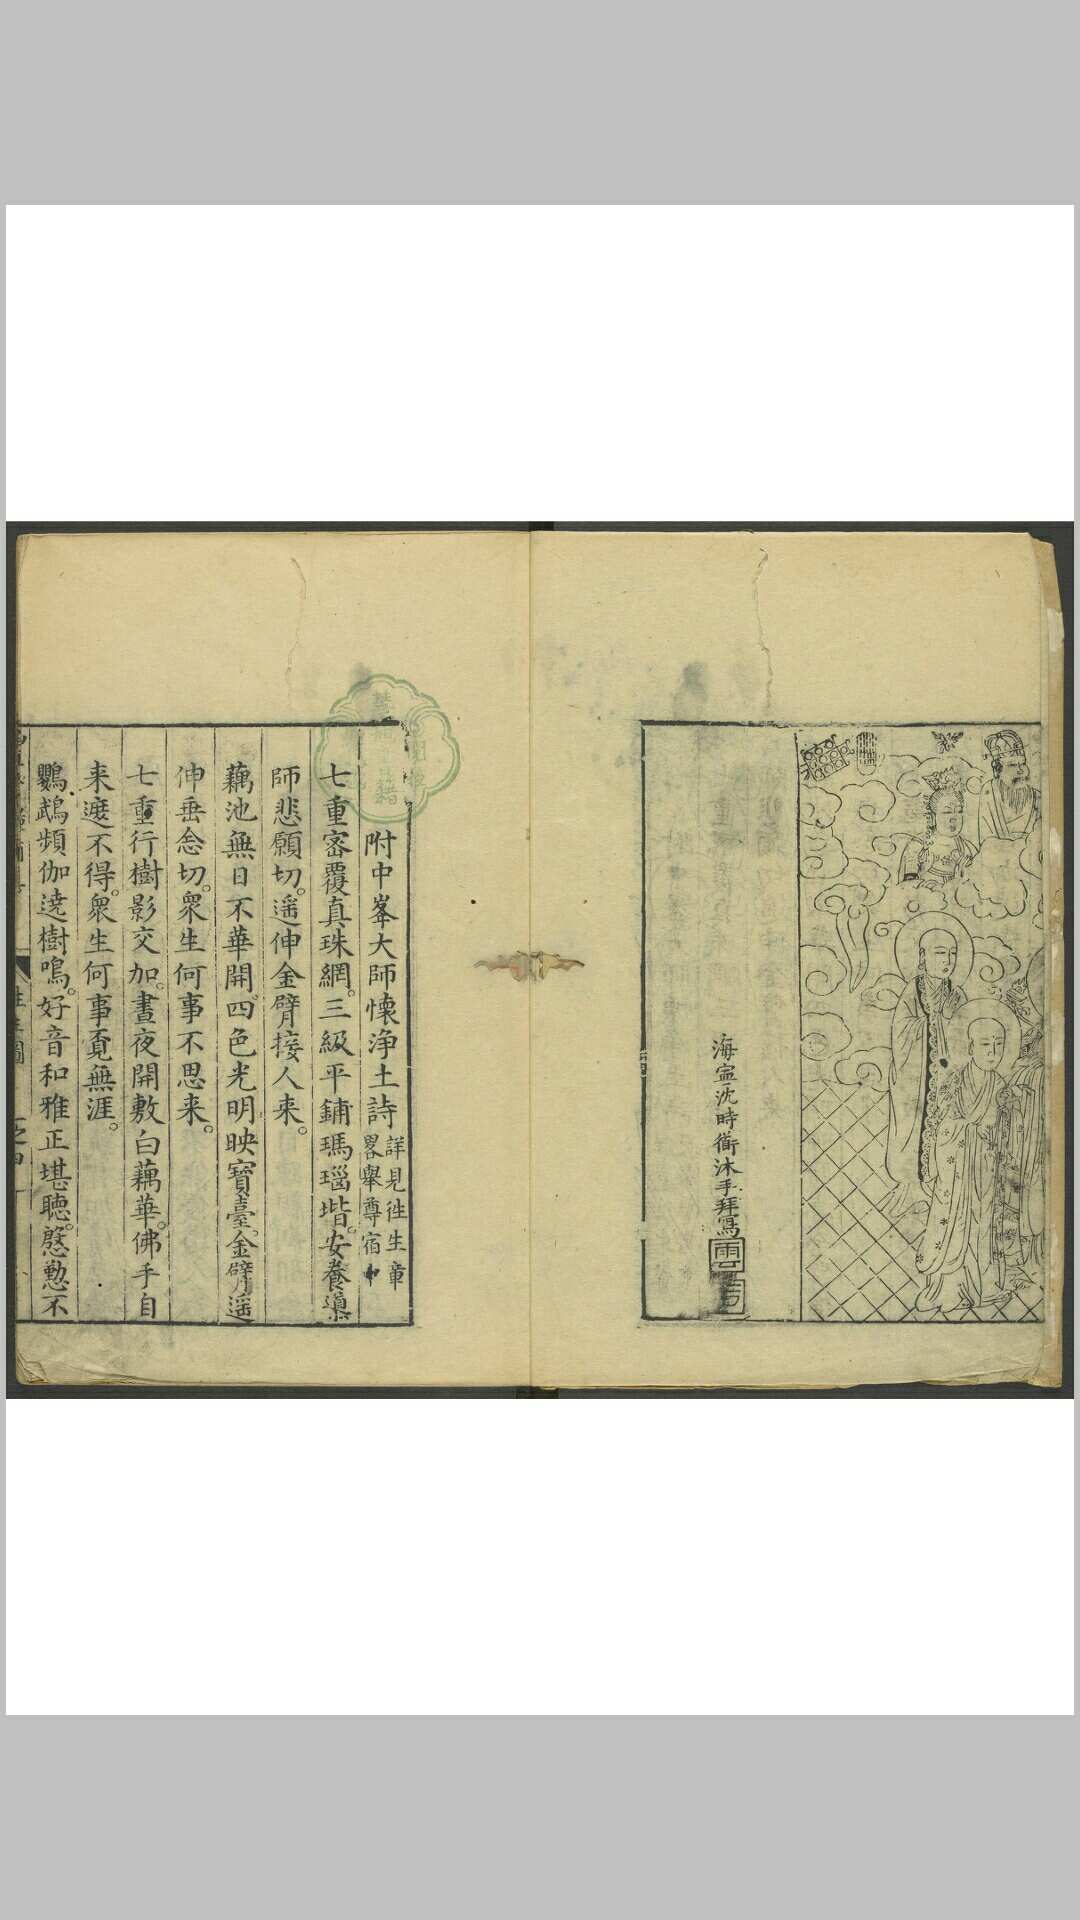 海寧沈時衛沐手拜寫
附中峯大師懷淨土詩詳見徃生章畧舉尊宿中
七重密覆真珠網。三級平鋪瑪瑙堦。安養導
師悲願切。遥伸金臂接人来。
藕池無日不華開四色光明映寶臺。金臂遥
伸垂念切。衆生何事不思来。
七重行樹影交加。晝夜開敷白藕華。佛手自
来遮不得。衆生何事覔無涯。
鸚鵡頻伽遶樹鳴。好音和雅正堪聽。慇懃不